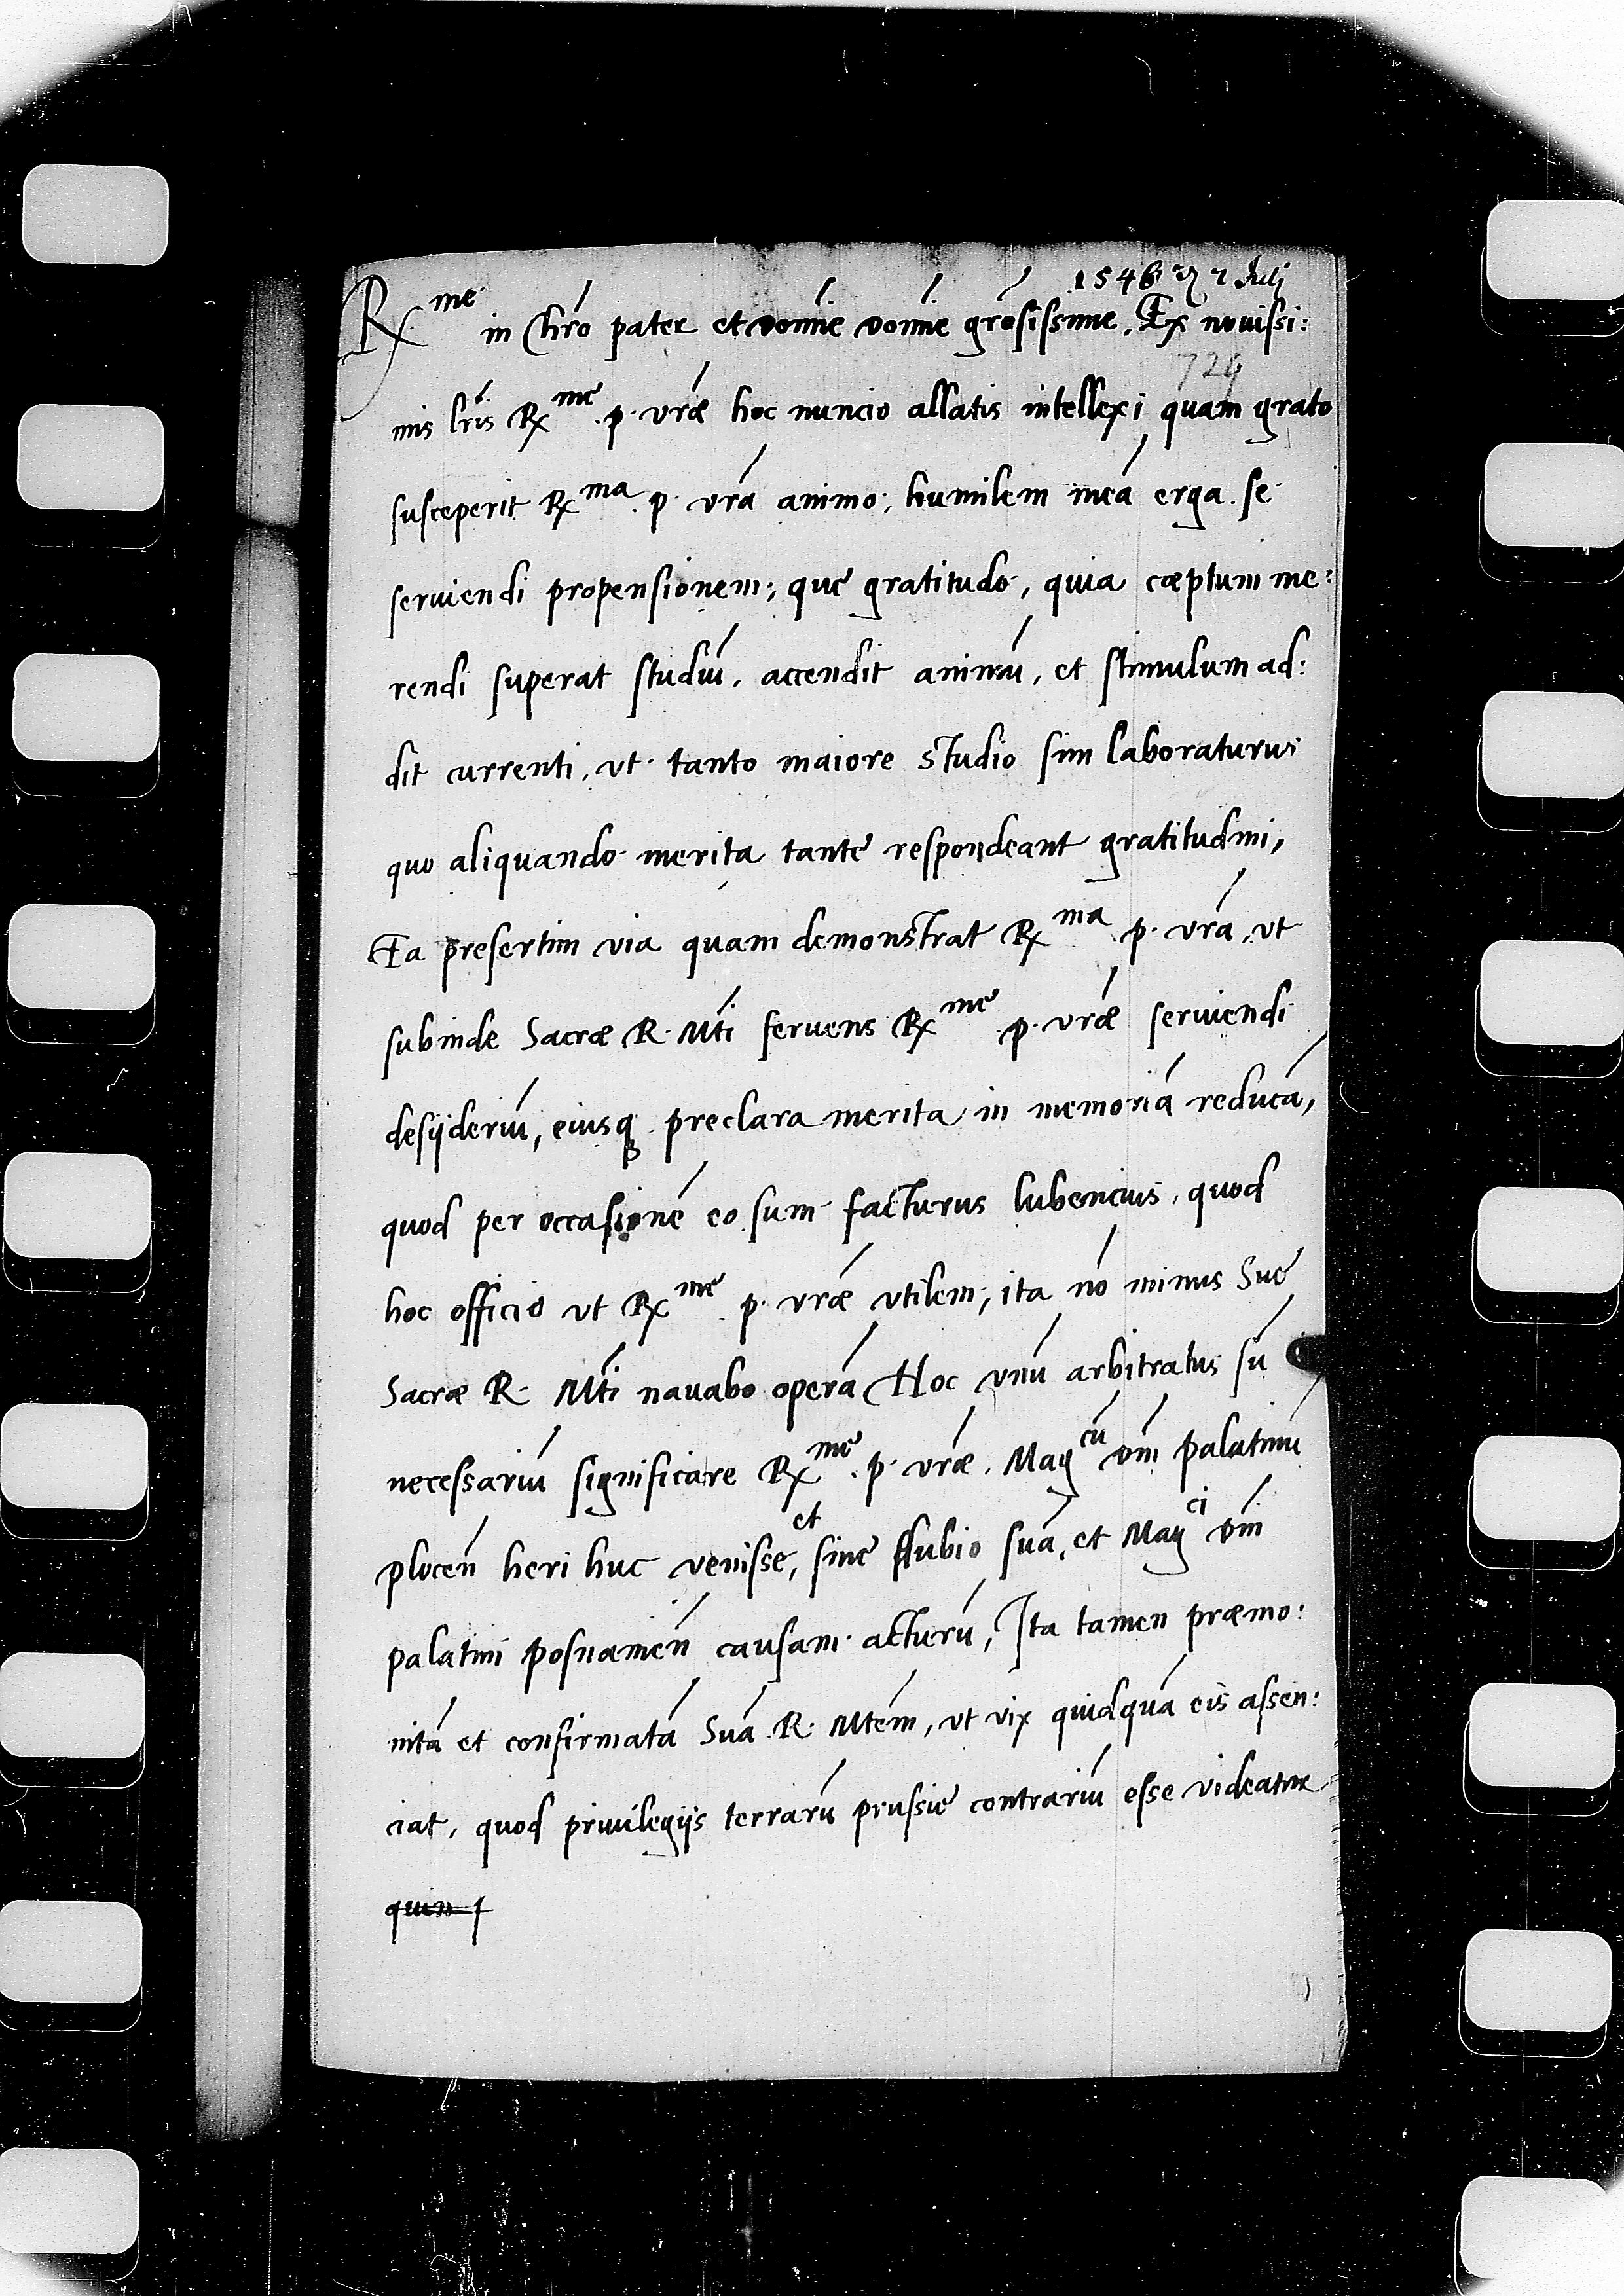 1546 27 Julj
Rx^me in Chro pater et domine domine grosissime. Ex nouissi:
729
mis lris Rx^me. p. vræ hoc nuncio allatis intellexi quam grato
susceperit Rx^ma p. vra animo; humilem meā erga se
seruiendi propensionem; quę gratitudo, quia cæptum me:
rendi superat studiū, accendit animū, et stimulum ad:
dit currenti, vt tanto maiore studio sim laboraturus
quo aliquando merita tantę respondeant gratitudini,
Ea presertim via quam demonstrat Rx^ma p. vra, vt
subinde Sacræ R. Mti feruens Rx^me p. vræ seruiendi
desijderiū, eiusq preclara merita in memoriā reducā,
quod per occasionē eo sum facturus lubencius, quod
hoc officio vt Rx^me p. vræ vtilem, ita nō minus Suę
Sacræ R. Mti nauabo operā Hoc vnū arbitratus sū
necessariū significare Rx^me. p. vræ. Mag^cū dm̄ palatinū
plocen̄ heri huc venisse, et sine dubio suā, et Mag^ci dni
palatini posnamen̄ causam acturū, Ita tamen præmo:
nitā et confirmatā Suā R. Mtem, vt vix quidquā eis assen:
ciat, quod priuilegijs terrarū prussię contrariū esse videatur
quin